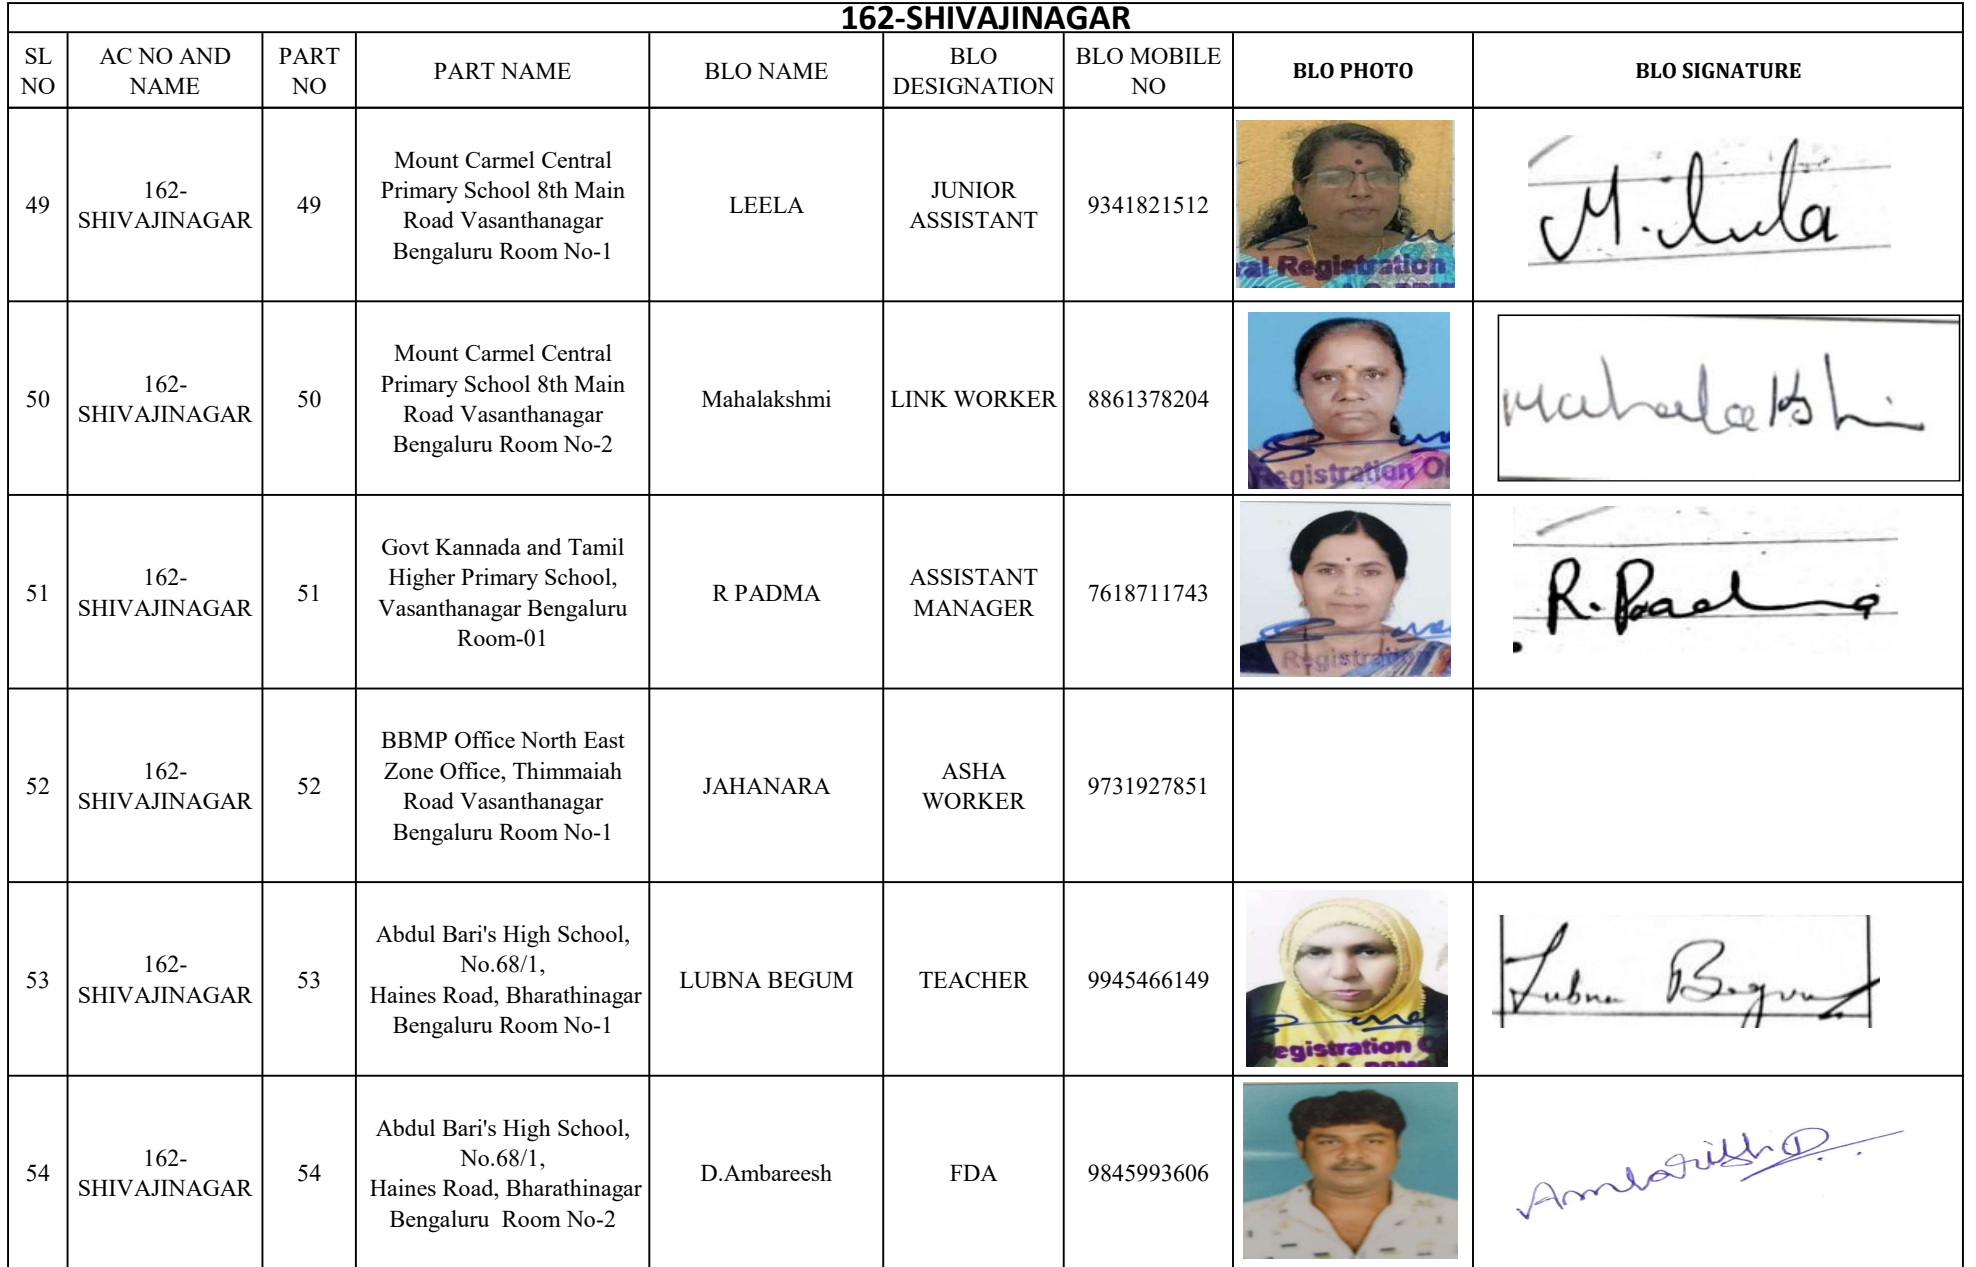 162-SHIVAJINAGAR
SL NO
AC NO AND NAME
PART NO
PART NAME
BLO NAME
BLO DESIGNATION
BLO MOBILE NO
BLO PHOTO
BLO SIGNATURE
49
162-
SHIVAJINAGAR
49
Mount Carmel Central
Primary School 8th Main
Road Vasanthanagar
Bengaluru Room No-1
LEELA
JUNIOR
ASSISTANT
9341821512
ral Registration
M. Leela
50
162-
SHIVAJINAGAR
50
Mount Carmel Central
Primary School 8th Main
Road Vasanthanagar
Bengaluru Room No-2
Mahalakshmi
LINK WORKER
8861378204
Registration Of
Mahalakshi
51
162-
SHIVAJINAGAR
51
Govt Kannada and Tamil
Higher Primary School,
Vasanthanagar Bengaluru
Room-01
R PADMA
ASSISTANT
MANAGER
7618711743
Registration
R. Padma
52
162-
SHIVAJINAGAR
52
BBMP Office North East
Zone Office, Thimmaiah
Road Vasanthanagar
Bengaluru Room No-1
JAHANARA
ASHA
WORKER
9731927851
53
162-
SHIVAJINAGAR
53
Abdul Bari's High School,
No.68/1,
Haines Road, Bharathinagar
Bengaluru Room No-1
LUBNA BEGUM
TEACHER
9945466149
egistration O
Lubna Begum
54
162-
SHIVAJINAGAR
54
Abdul Bari's High School,
No.68/1,
Haines Road, Bharathinagar
Bengaluru Room No-2
D.Ambareesh
FDA
9845993606
Ambarish D